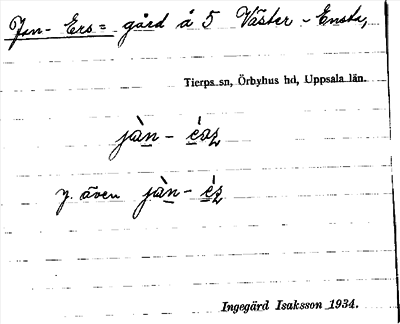 Jan-Ers= gård å 5 Väster-Ensta,
Tierps sn, Örbyhus hd, Uppsala län.
jàn -
y. även jàn -
Ingegärd Isaksson 1934.